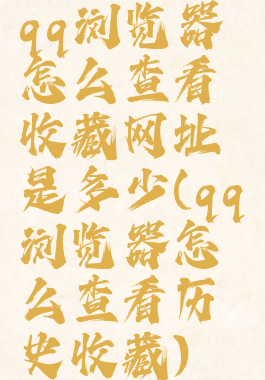 qq浏览器
怎么查看
收藏网址
是多少(qq
浏览器怎
么查看历
史收藏)